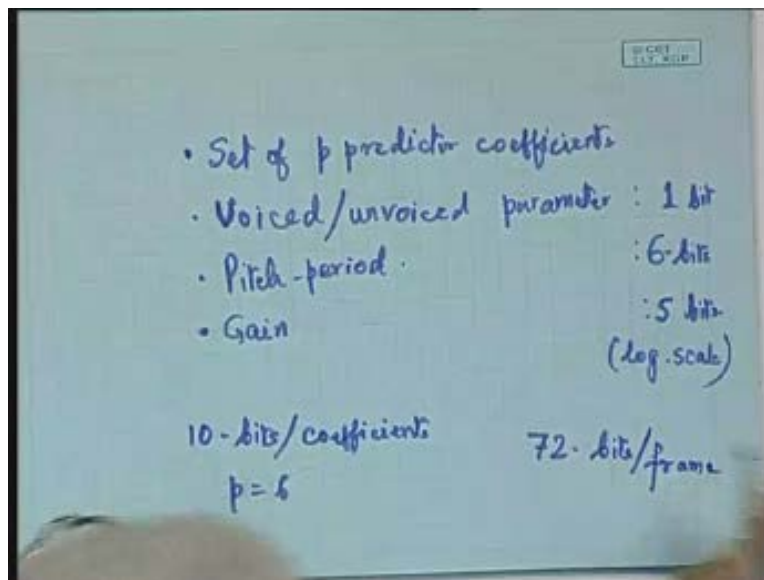 © CET
I.I.T. KGP
• Set of p predictor coefficients
• Voiced/unvoiced parameter : 1 bit
• Pitch-period. : 6-bits
• Gain : 5 bits.
(log.scale)
10-bits/coefficients 72. bits/frame
p = 6